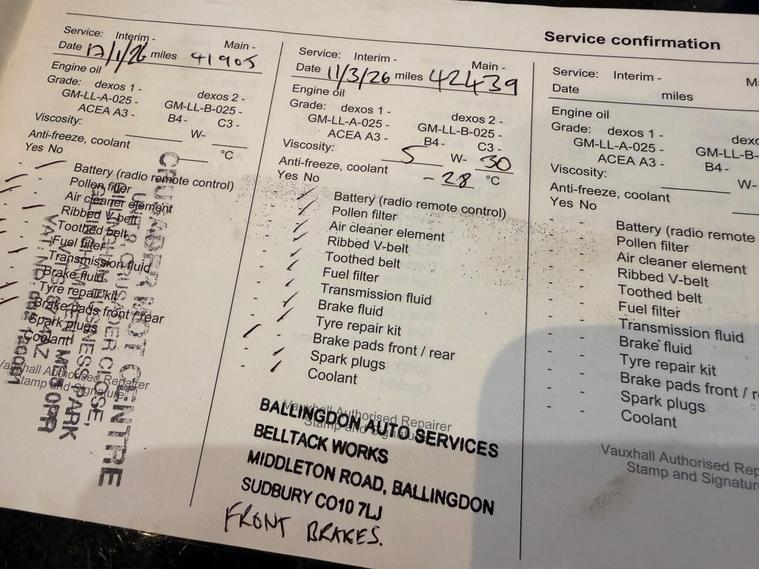 Service confirmation
Service: Interim - Main -
Date 12/1/26 miles 41905
Engine oil
Grade: dexos 1 - dexos 2 -
GM-LL-A-025 - GM-LL-B-025 -
ACEA A3 - B4- C3 -
Viscosity: W-
Anti-freeze, coolant °C
Yes No
Battery (radio remote control)
Pollen filter
Air cleaner element
Ribbed V-belt
Toothed belt
Fuel filter
Transmission fluid
Brake fluid
Tyre repair kit
Brake pads front / rear
Spark plugs
Coolant
Vauxhall Authorised Repairer
Stamp and Signature
CRUSADER MOT CENTRE
CRUSADER CLOSE,
BUSINESS PARK
Service: Interim - Main -
Date 11/3/26 miles 42439
Engine oil
Grade: dexos 1 - dexos 2 -
GM-LL-A-025 - GM-LL-B-025 -
ACEA A3 - B4- C3 -
Viscosity: 5 W- 30
Anti-freeze, coolant - 28 °C
Yes No
Battery (radio remote control)
Pollen filter
Air cleaner element
Ribbed V-belt
Toothed belt
Fuel filter
Transmission fluid
Brake fluid
Tyre repair kit
Brake pads front / rear
Spark plugs
Coolant
Vauxhall Authorised Repairer
Stamp and Signature
BALLINGDON AUTO SERVICES
BELLTACK WORKS
MIDDLETON ROAD, BALLINGDON
SUDBURY CO10 7LJ
FRONT BRAKES.
Service: Interim - M
Date miles
Engine oil
Grade: dexos 1 - dexo
GM-LL-A-025 - GM-LL-B-
ACEA A3 - B4-
Viscosity: W-
Anti-freeze, coolant
Yes No
Battery (radio remote
Pollen filter
Air cleaner element
Ribbed V-belt
Toothed belt
Fuel filter
Transmission fluid
Brake fluid
Tyre repair kit
Brake pads front / r
Spark plugs
Coolant
Vauxhall Authorised Rep
Stamp and Signatur